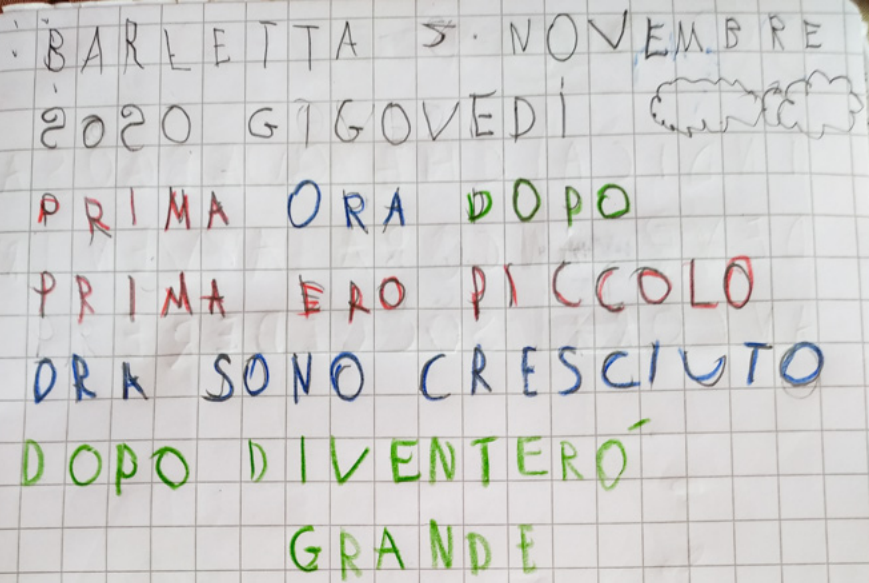 BARLETTA 5. NOVEMBRE
2020 GIGOVEDÍ
PRIMA ORA DOPO
PRIMA ERO PICCOLO
ORA SONO CRESCIUTO
DOPO DIVENTERÓ
GRANDE